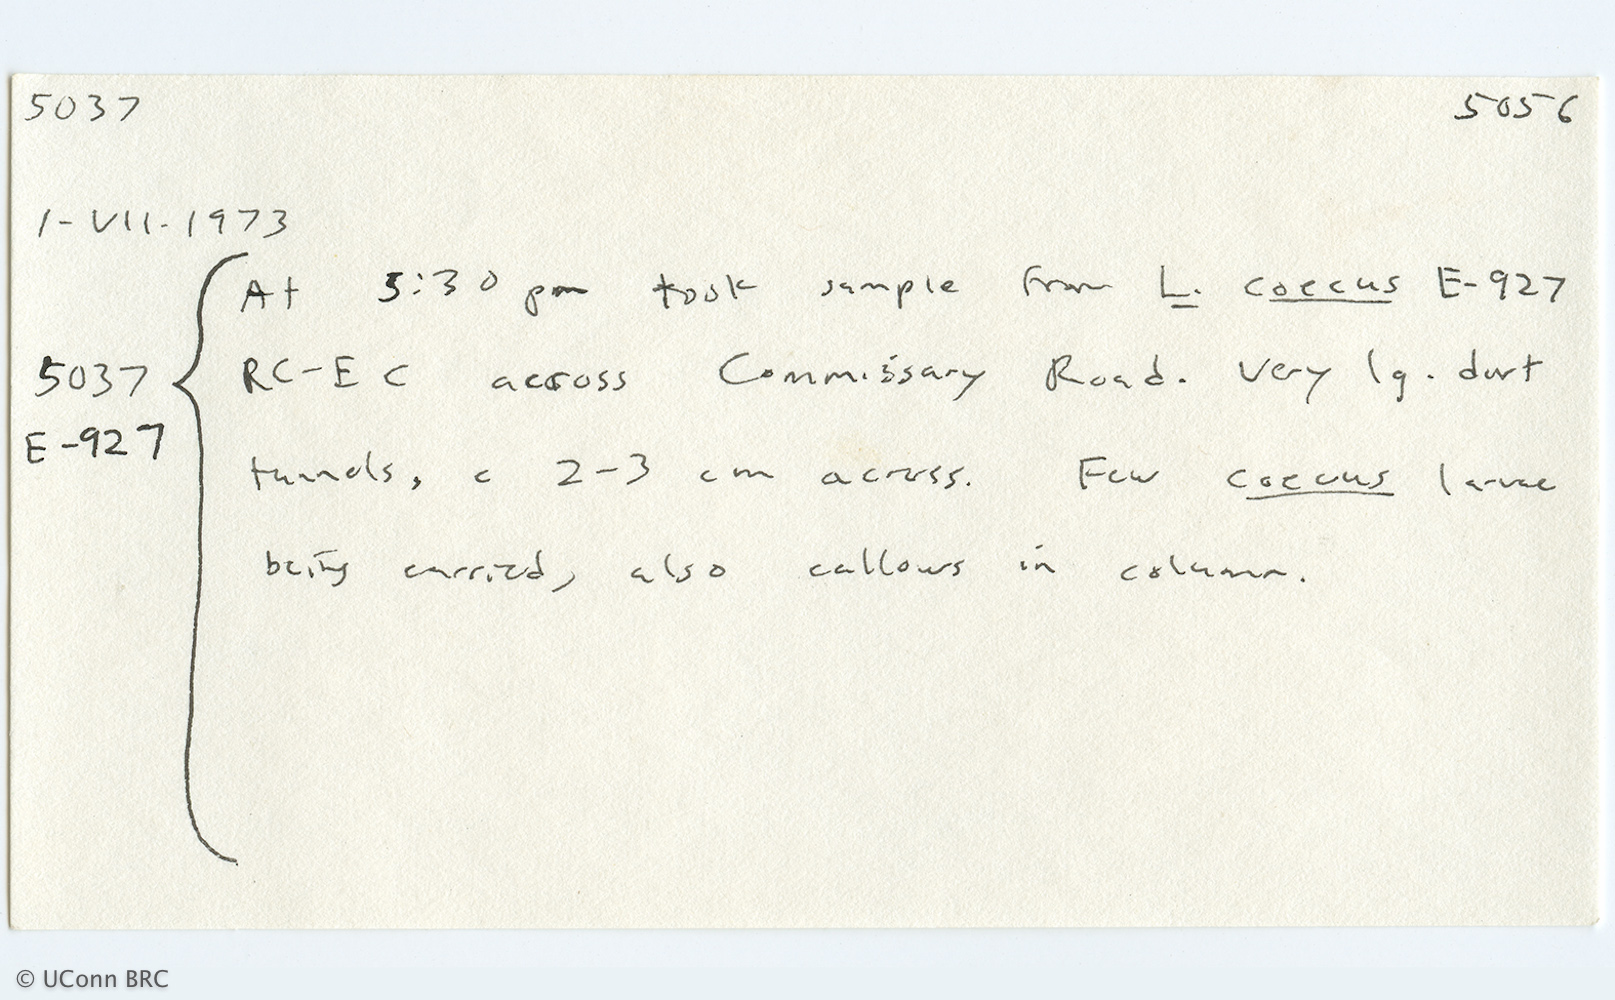 5037 5056
1-VII-1973
At 5:30 pm took sample from L. coecus E-927
5037 RC-EC across Commissary Road. Very lg. dirt
E-927
tunnels, c 2-3 cm across. Few coecus larvae
being carried, also callows in column.
© UConn BRC